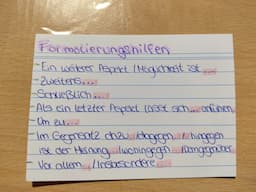 Formulierungshilfen
- Ein weiterer Aspekt / Möglichkeit ist ...
- Zweitens ...
- Schließlich ...
- Als ein letzter Aspekt lässt sich ... anführen
- Um zu ...
- Im Gegensatz dazu / dagegen / hingegen
ist der Meinung / wohingegen / demgegenüber
- Vor allem / Insbesondere ...